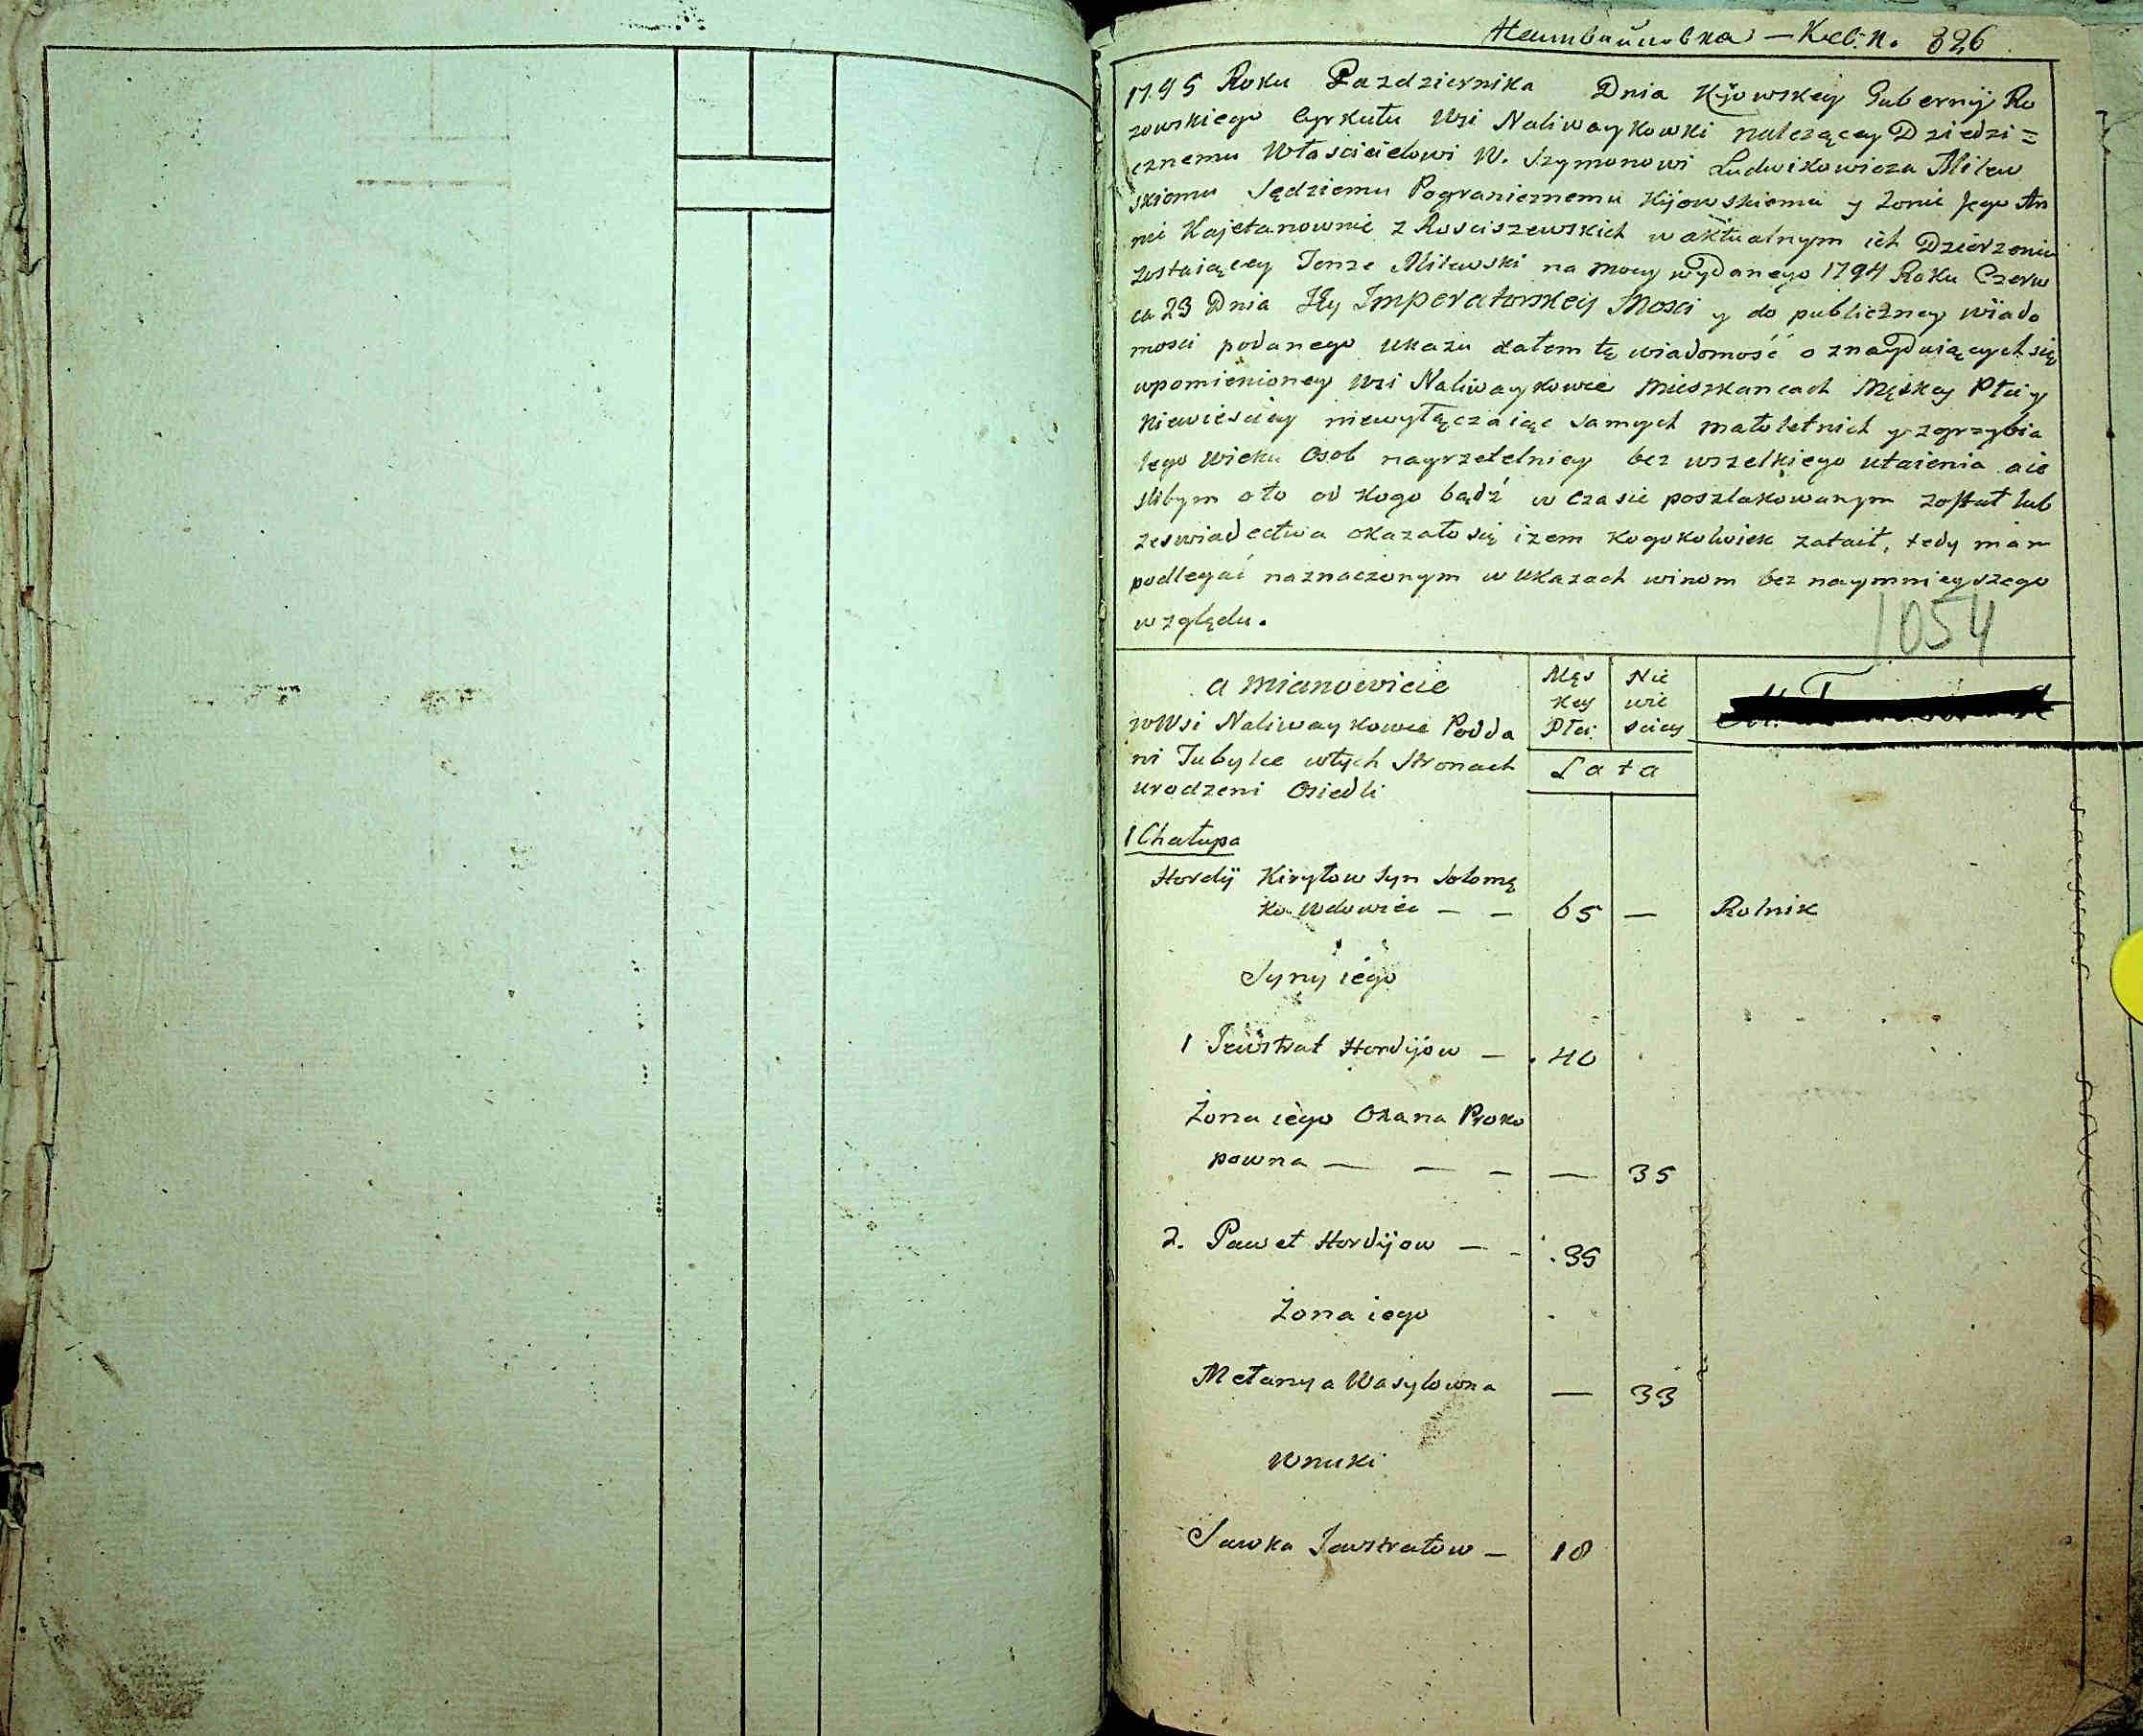 826
1795 Roku Pazdziernika Dnia Kijowskiey Gubernij Ro
zowskiego Cyrkułu Wsi Naliwaykowki nalezącey Dziedzi=
cznemu Włascicielowi W. Szymonowi Ludwikowicza Milew
skiemu Sędziemu Pogranicznemu Kijowskiemu y Zonie Jego An
nie Kajetanownie z Rosciszewskich w aktualnym ich Dzierzeniu
zostaiącey Tenze Milewski na mocy wydanego 1794 Roku Czerw
ca 23 Dnia Jey Imperatorskey Mosci y do publiczney wiado
mosci podanego ukazu dałem tę wiadomość o znayduiących się
wpomienioney wsi Naliwaykowce Mieszkancach Męskey Płci y
Niewiesciey niewyłączaiąc samych małoletnich y zgrzybia
łego wieku Osob nayrzetelniey bez wszelkiego utaienia aie
slibym oto od kogo bądź w czasie poszlakowanym został lub
zeswiadectwa okazało się izem kogokolwiek zataił, tedy mam
podlegać naznaczonym w ukazach winom bez naymnieyszego
względu.
1054
a mianowicie
w Wsi Naliwaykowce Podda
ni Tubylce wtych Stronach
urodzeni Osiedli
Męs
key
Płci
Nie
wie
sciey
Lata
1 Chałupa
Hordij Kiryłow Syn Solomę
ko Wdowiec — — 65 — Rolnik
Syny iego
1 Jewstrat Hordijow — 40
Żona iego Oxana Proko
powna — — — — 35
2. Paweł Hordijow — - 35
Żona iego
Mełanya Wasylowna — 33
Wnuki
Sawka Jewstratow — 18